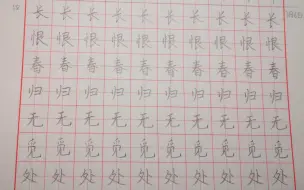 长长长长长长长长长长
恨恨恨恨恨恨恨恨恨恨
春春春春春春春春春春
归归归归归归归归归归
无无无无无无无无无无
觅觅觅觅觅觅觅觅觅觅
处处处处处处处处处处